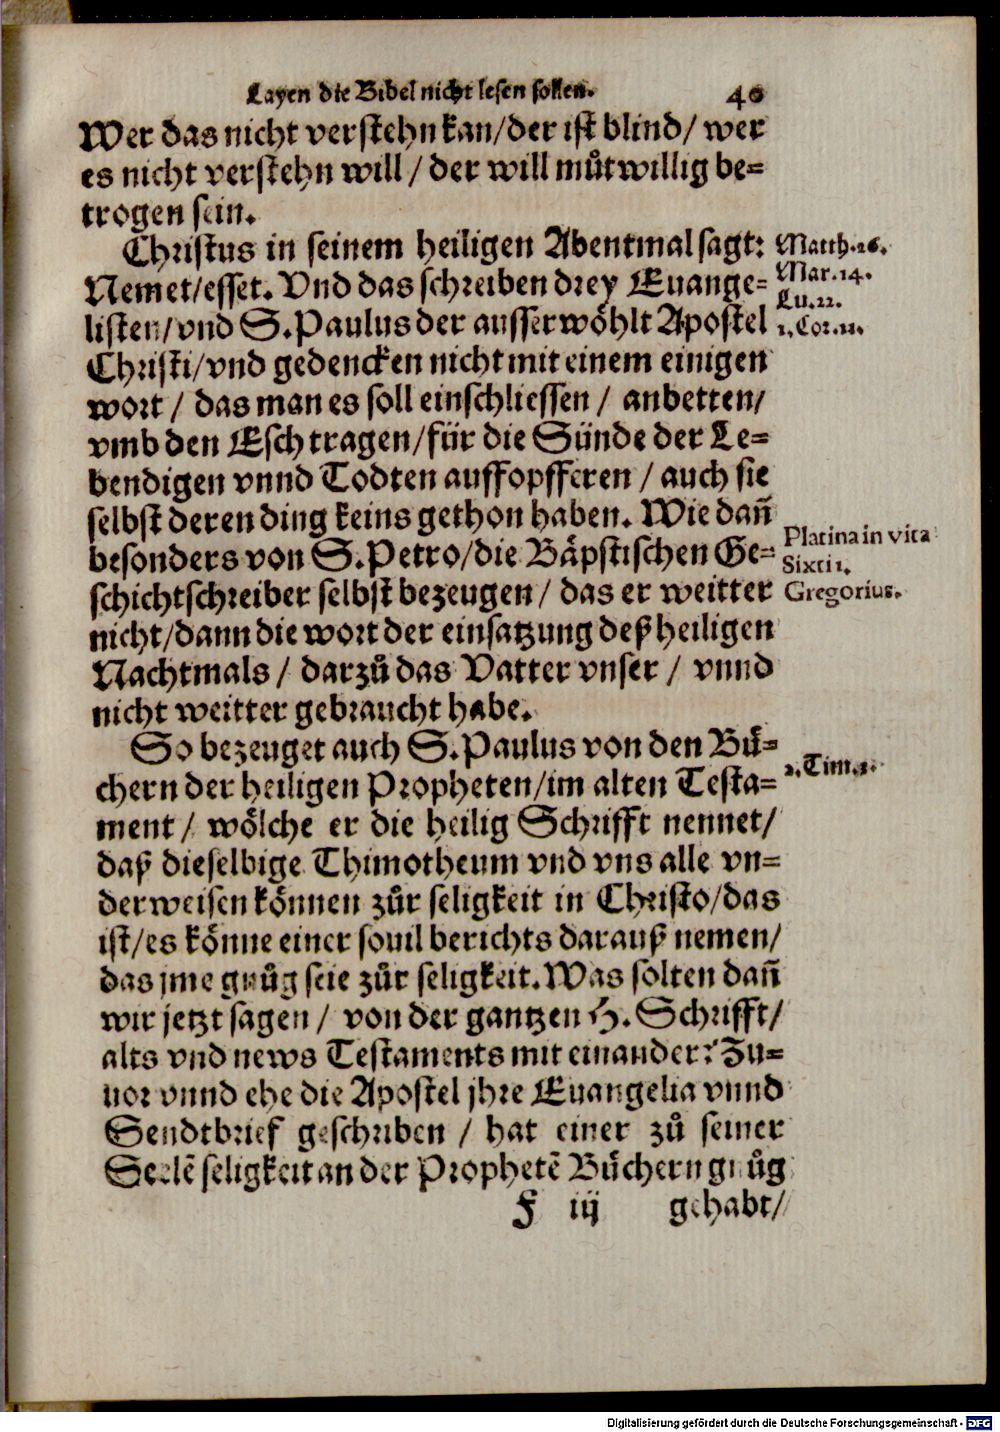 Layen die Bibel nicht lesen sollen. 40
Wer das nicht verstehn kan/der ist blind/ wer
es nicht verstehn will / der will můtwillig be⸗
trogen sein.
Christus in seinem heiligen Abentmal sagt: Matth.26.
Nemet/esset. Vnd das schreiben drey Euange⸗ Mar.14.
Lu.22.
listen/vnd S.Paulus der ausserwöhlt Apostel 1.Cor.11.
Christi/vnd gedencken nicht mit einem einigen
wort / das man es soll einschliessen / anbetten/
vmb den Esch tragen/für die Sünde der Le⸗
bendigen vnnd Todten auffopfferen / auch sie
selbst deren ding keins gethon haben. Wie dañ
besonders von S.Petro/die Bäpstischen Ge⸗ Platina in vita
Sixti 1.
schichtschreiber selbst bezeugen / das er weitter Gregorius.
nicht/dann die wort der einsatzung deß heiligen
Nachtmals / darzů das Vatter vnser / vnnd
nicht weitter gebraucht habe.
So bezeuget auch S.Paulus von den Bü⸗
chern der heiligen Propheten/im alten Testa⸗ 2.Tim.3.
ment / wölche er die heilig Schrifft nennet/
daß dieselbige Thimotheum vnd vns alle vn⸗
derweisen können zůr seligkeit in Christo/das
ist/es könne einer souil berichts darauß nemen/
das jme gnůg seie zůr seligkeit. Was solten dañ
wir jetzt sagen / von der gantzen H. Schrifft/
alts vnd news Testaments mit einander? Zu⸗
uor vnnd ehe die Apostel jhre Euangelia vnnd
Sendtbrief geschriben / hat einer zů seiner
Seelẽ seligkeit an der Prophetẽ Büchern gnůg
F iij gehabt/
Digitalisierung gefördert durch die Deutsche Forschungsgemeinschaft - DFG